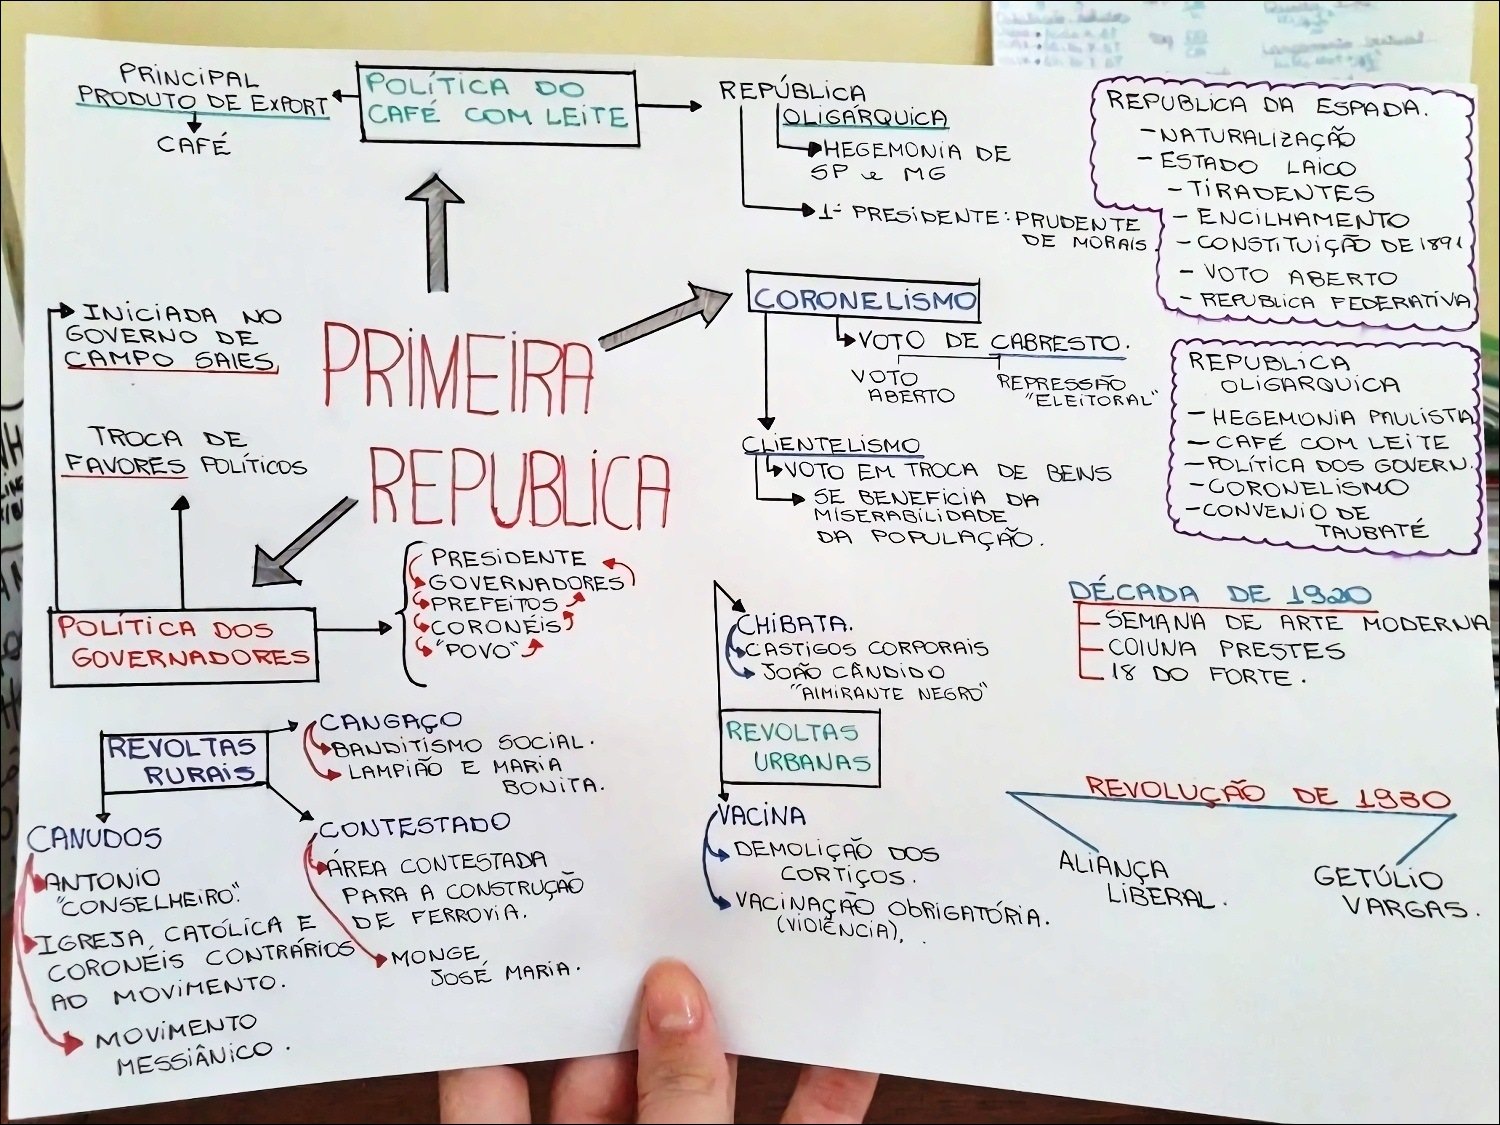 PRINCIPAL
PRODUTO DE EXPORT
CAFÉ
POLÍTICA DO
CAFÉ COM LEITE
REPÚBLICA
OLIGÁRQUICA
HEGEMONIA DE
SP e MG
1º PRESIDENTE: PRUDENTE
DE MORAIS.
REPUBLICA DA ESPADA.
- NATURALIZAÇÃO
- ESTADO LAICO
- TIRADENTES
- ENCILHAMENTO
- CONSTITUIÇÃO DE 1891
- VOTO ABERTO
- REPUBLICA FEDERATIVA
INICIADA NO
GOVERNO DE
CAMPO SALES.
TROCA DE
FAVORES POLÍTICOS
PRIMEIRA
REPUBLICA
CORONELISMO
VOTO DE CABRESTO.
VOTO
ABERTO
REPRESSÃO
"ELEITORAL"
CLIENTELISMO
VOTO EM TROCA DE BENS
SE BENEFICIA DA
MISERABILIDADE
DA POPULAÇÃO.
REPUBLICA
OLIGARQUICA
- HEGEMONIA PAULISTA
- CAFÉ COM LEITE
- POLÍTICA DOS GOVERN.
- CORONELISMO
- CONVENIO DE
TAUBATÉ
POLÍTICA DOS
GOVERNADORES
PRESIDENTE
GOVERNADORES
PREFEITOS
CORONÉIS
"POVO"
CHIBATA.
CASTIGOS CORPORAIS
JOÃO CÂNDIDO
"ALMIRANTE NEGRO"
REVOLTAS
URBANAS
VACINA
DEMOLIÇÃO DOS
CORTIÇOS.
VACINAÇÃO OBRIGATÓRIA.
(VIOLÊNCIA).
DÉCADA DE 1920
SEMANA DE ARTE MODERNA
COLUNA PRESTES
18 DO FORTE.
REVOLTAS
RURAIS
CANGAÇO
BANDITISMO SOCIAL.
LAMPIÃO E MARIA
BONITA.
CANUDOS
ANTONIO
"CONSELHEIRO."
IGREJA CATÓLICA E
CORONÉIS CONTRÁRIOS
AO MOVIMENTO.
MOVIMENTO
MESSIÂNICO.
CONTESTADO
ÁREA CONTESTADA
PARA A CONSTRUÇÃO
DE FERROVIA.
MONGE
JOSÉ MARIA.
REVOLUÇÃO DE 1930
ALIANÇA
LIBERAL.
GETÚLIO
VARGAS.